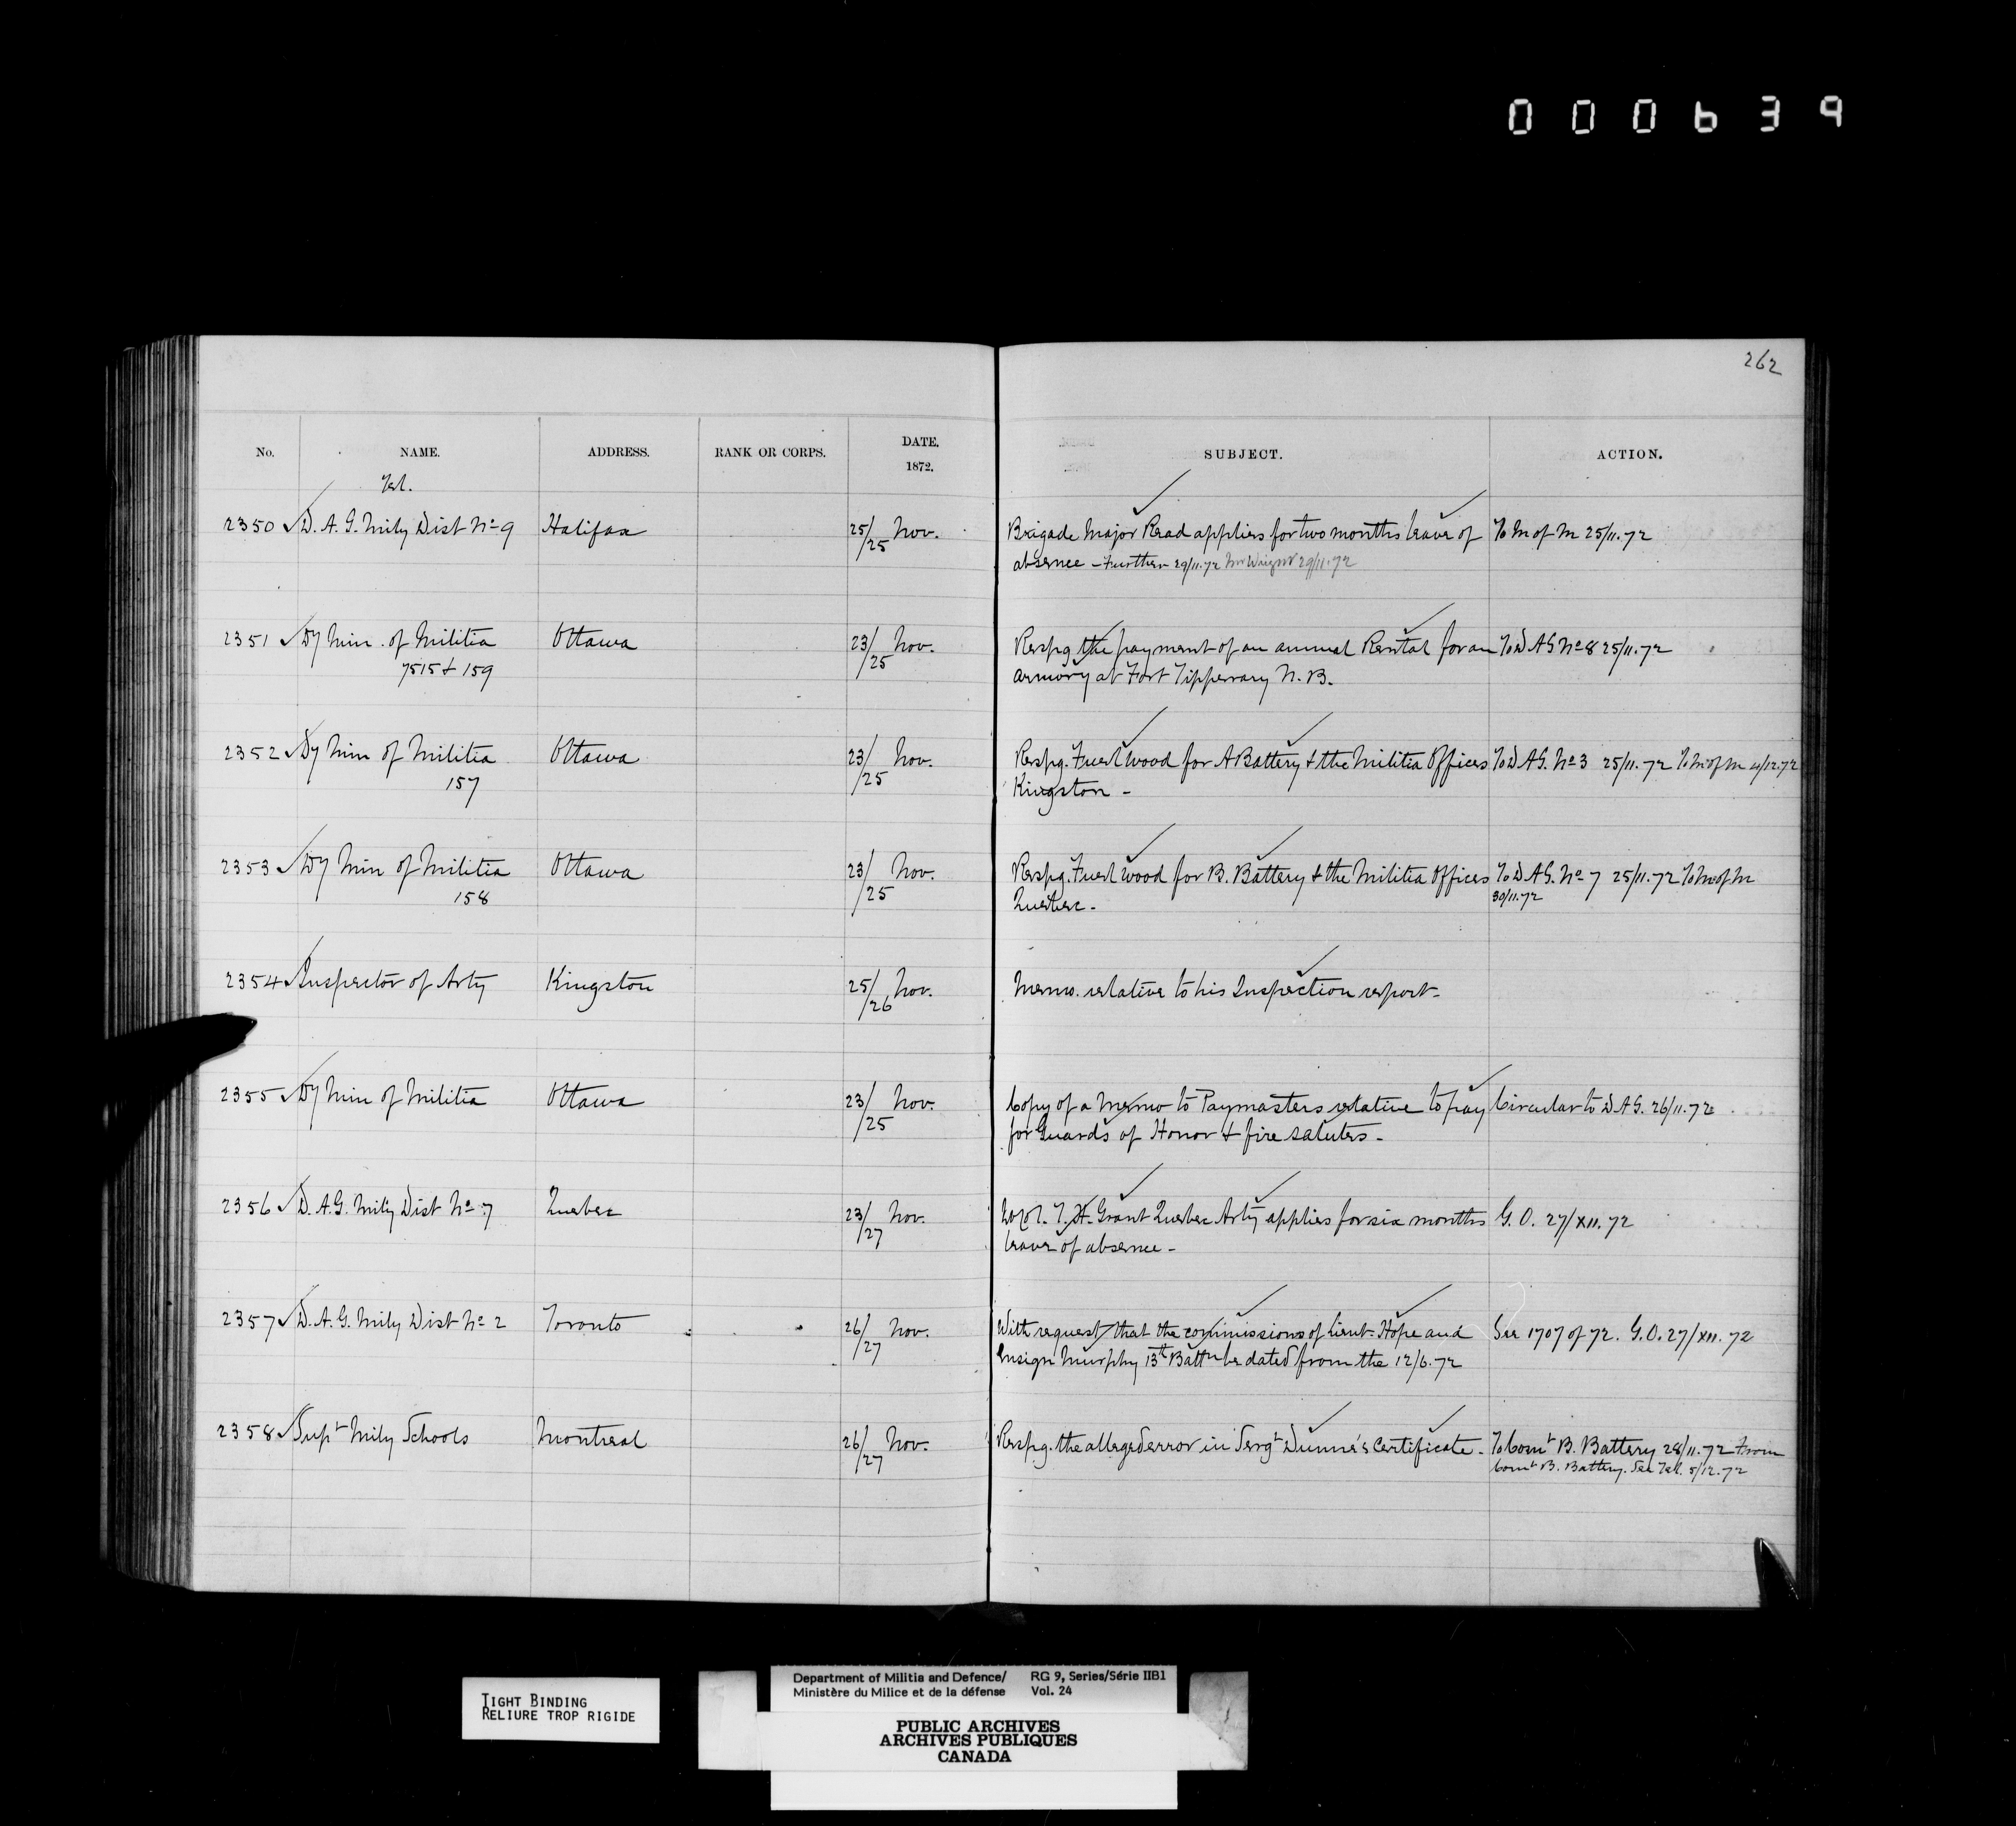 000639
262
No. NAME. ADDRESS. RANK OR CORPS. DATE. 1872. SUBJECT. ACTION.
Tel.
2350 D. A. G. Mily Dist No 9 Halifax 25/25 Nov. Brigade Major Read applies for two months leave of To M of M 25/11.72
absence - Further 29/11.72 29/11.72
2351 Dy Min. of Militia Ottawa 23/25 Nov. Respg. the payment of an annual Rental for an To D A G No 8 25/11.72
7515 & 159 armory at Fort Tipperary N. B.
2352 Dy Min of Militia Ottawa 23/25 Nov. Respg. Fuel wood for A Battery & the Militia Offices To D A G. No 3 25/11.72 To M of M 4/12.72
157 Kingston -
2353 Dy Min of Militia Ottawa 23/25 Nov. Respg. Fuel wood for B. Battery & the Militia Offices To D A G. No 7 25/11.72 To M of M
158 Quebec - 30/11.72
2354 Inspector of Arty Kingston 25/26 Nov. Memo. relative to his Inspection report -
2355 Dy Min of Militia Ottawa 23/25 Nov. Copy of a Memo to Paymasters relative to pay Circular to D A G. 26/11.72
for Guards of Honor & fire saluters -
2356 D. A. G. Mily Dist No 7 Quebec 23/27 Nov. Lt Col. T. H. Grant Quebec Arty applies for six months G. O. 27/XII.72
leave of absence -
2357 D. A. G. Mily Dist No 2 Toronto 26/27 Nov. With request that the commissions of Lieut. Hope and See 1707 of 72. G. O. 27/XII.72
Ensign Murphy 13th Battn be dated from the 12/6.72
2358 Supt Mily Schools Montreal 26/27 Nov. Respg. the alleged error in Sergt Dunne's Certificate. To Comt B. Battery 28/11.72 From
Comt B. Battery. See Tel. 5/12.72
TIGHT BINDING
RELIURE TROP RIGIDE
Department of Militia and Defence/ RG 9, Series/Série IIB1
Ministère du Milice et de la défense Vol. 24
PUBLIC ARCHIVES
ARCHIVES PUBLIQUES
CANADA